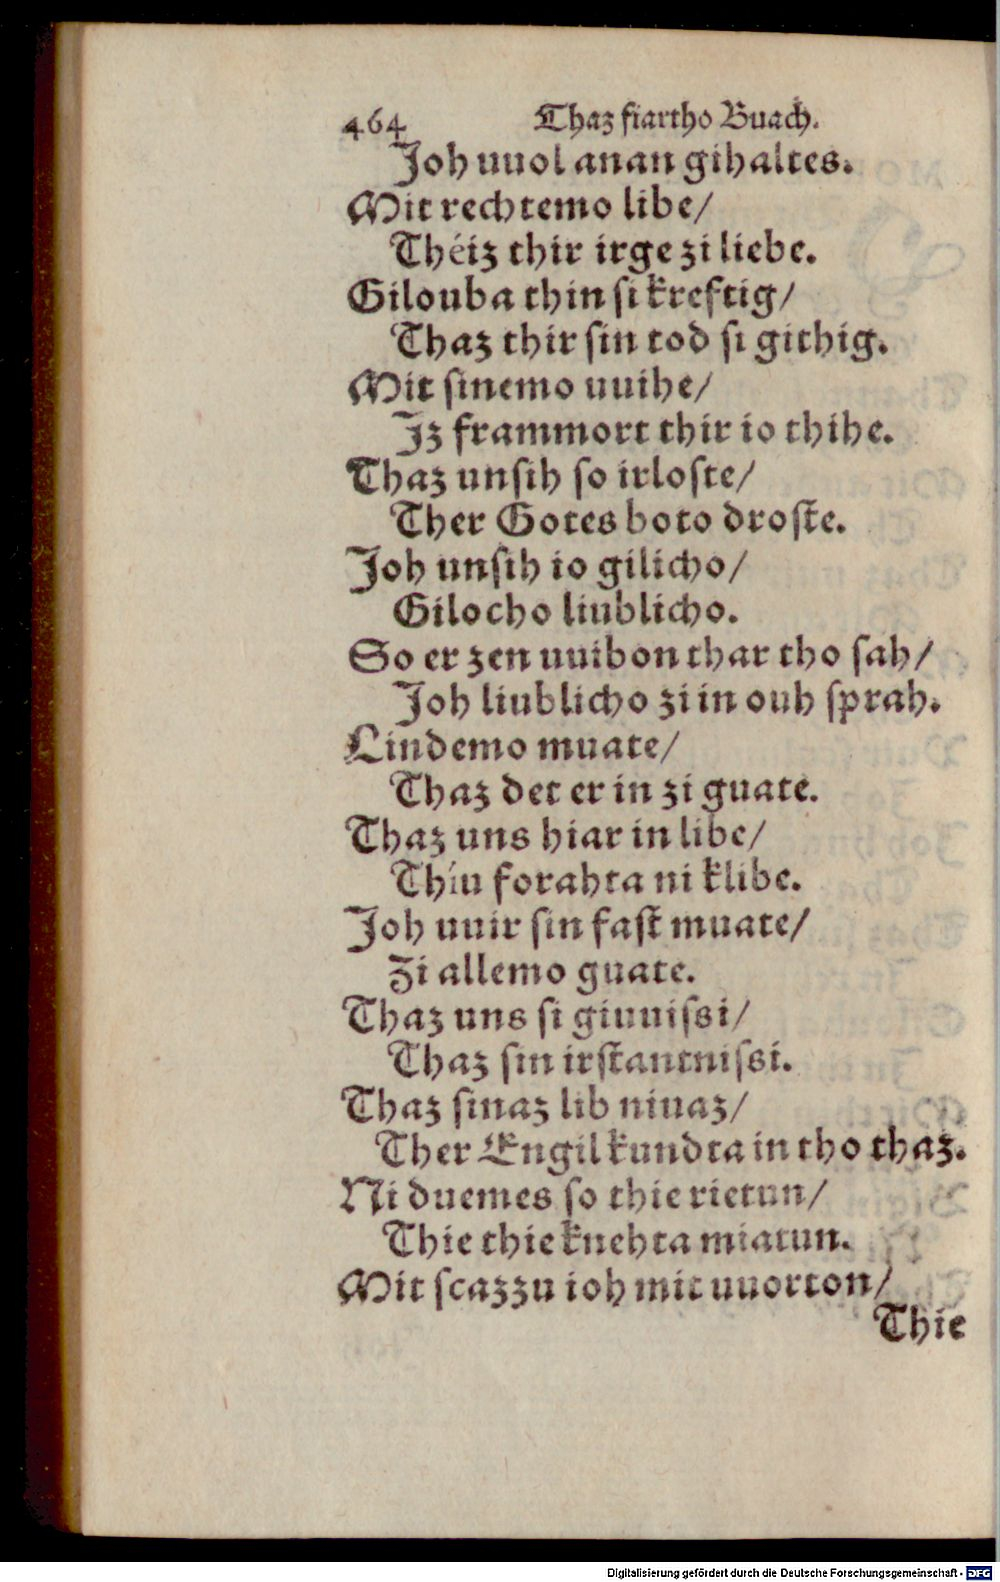 464 Thaz fiartho Buach.
Joh uuol anan gihaltes.
Mit rechtemo libe/
Théiz thir irge zi liebe.
Gilouba thin si kreftig/
Thaz thir sin tod si githig.
Mit sinemo uuihe/
Jz frammort thir io thihe.
Thaz unsih so irloste/
Ther Gotes boto droste.
Joh unsih io gilicho/
Gilocho liublicho.
So er zen uuibon thar tho sah/
Joh liublicho zi in ouh sprah.
Lindemo muate/
Thaz det er in zi guate.
Thaz uns hiar in libe/
Thíu forahta ni klibe.
Joh uuir sin fast muate/
Zi allemo guate.
Thaz uns si giuuissi/
Thaz sin irstantnissi.
Thaz sinaz lib niuaz/
Ther Engil kundta in tho thaz.
Ni duemes so thie rietun/
Thie thie knehta miatun.
Mit scazzu ioh mit uuorton/
Thie
Digitalisierung gefördert durch die Deutsche Forschungsgemeinschaft - DFG